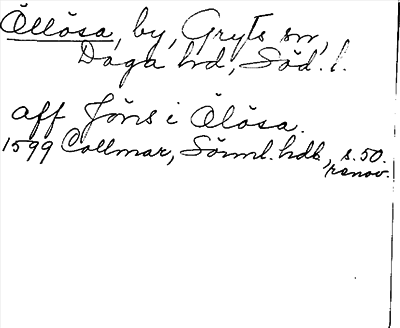 Ällösa, by, Gryts sn,
Daga hd, Söd. l.
aff Jöns i Älösa.
1599 Collmar, Sörml. hdl., s. 50.
renov.